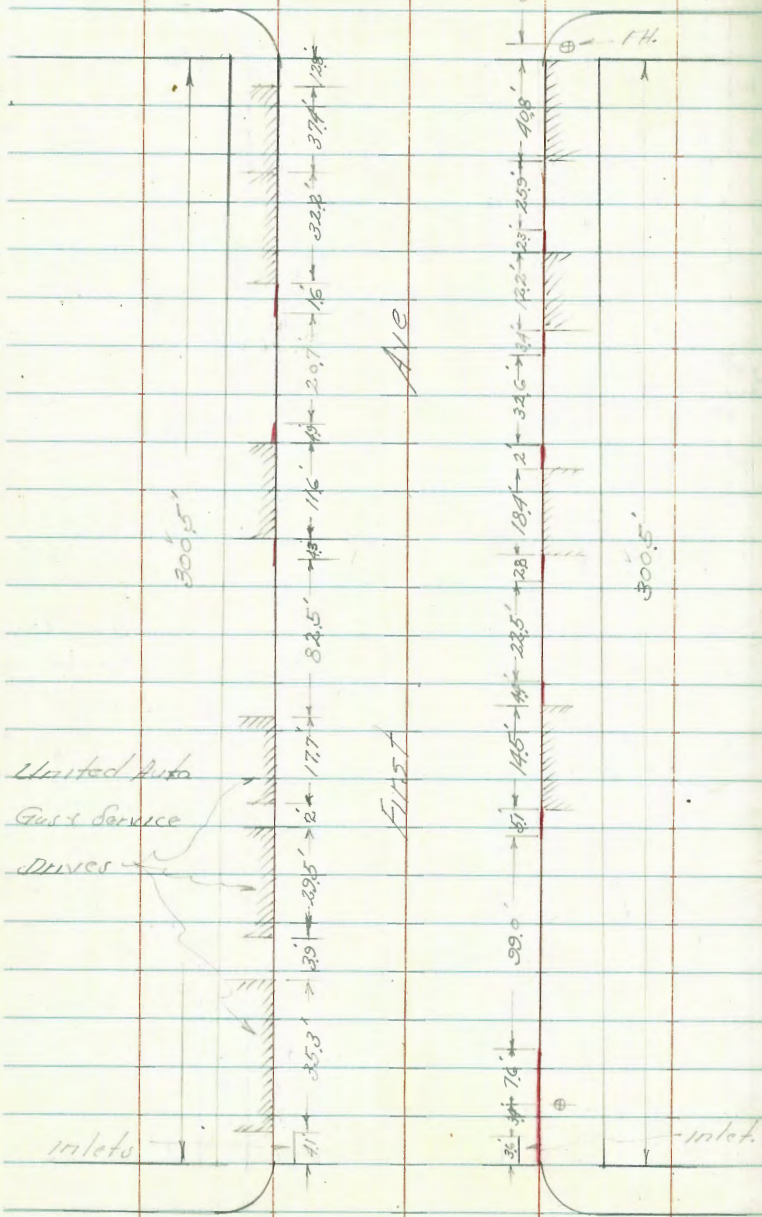 F.H.
12.8'
37.4'
32.2'
1.6'
20.7'
4.9'
11.6'
4.3'
82.5'
17.7'
2'
29.5'
3.9'
35.3'
4.1'
300.5'
First Ave
40.8'
25.9'
2.3'
12.2'
3.4'
32.6'
2'
18.4'
2.8'
22.5'
14.5'
5.1'
99.0'
7.6'
3.6'
300.5'
United Auto
Gas & Service
Drives
inlets
inlet.